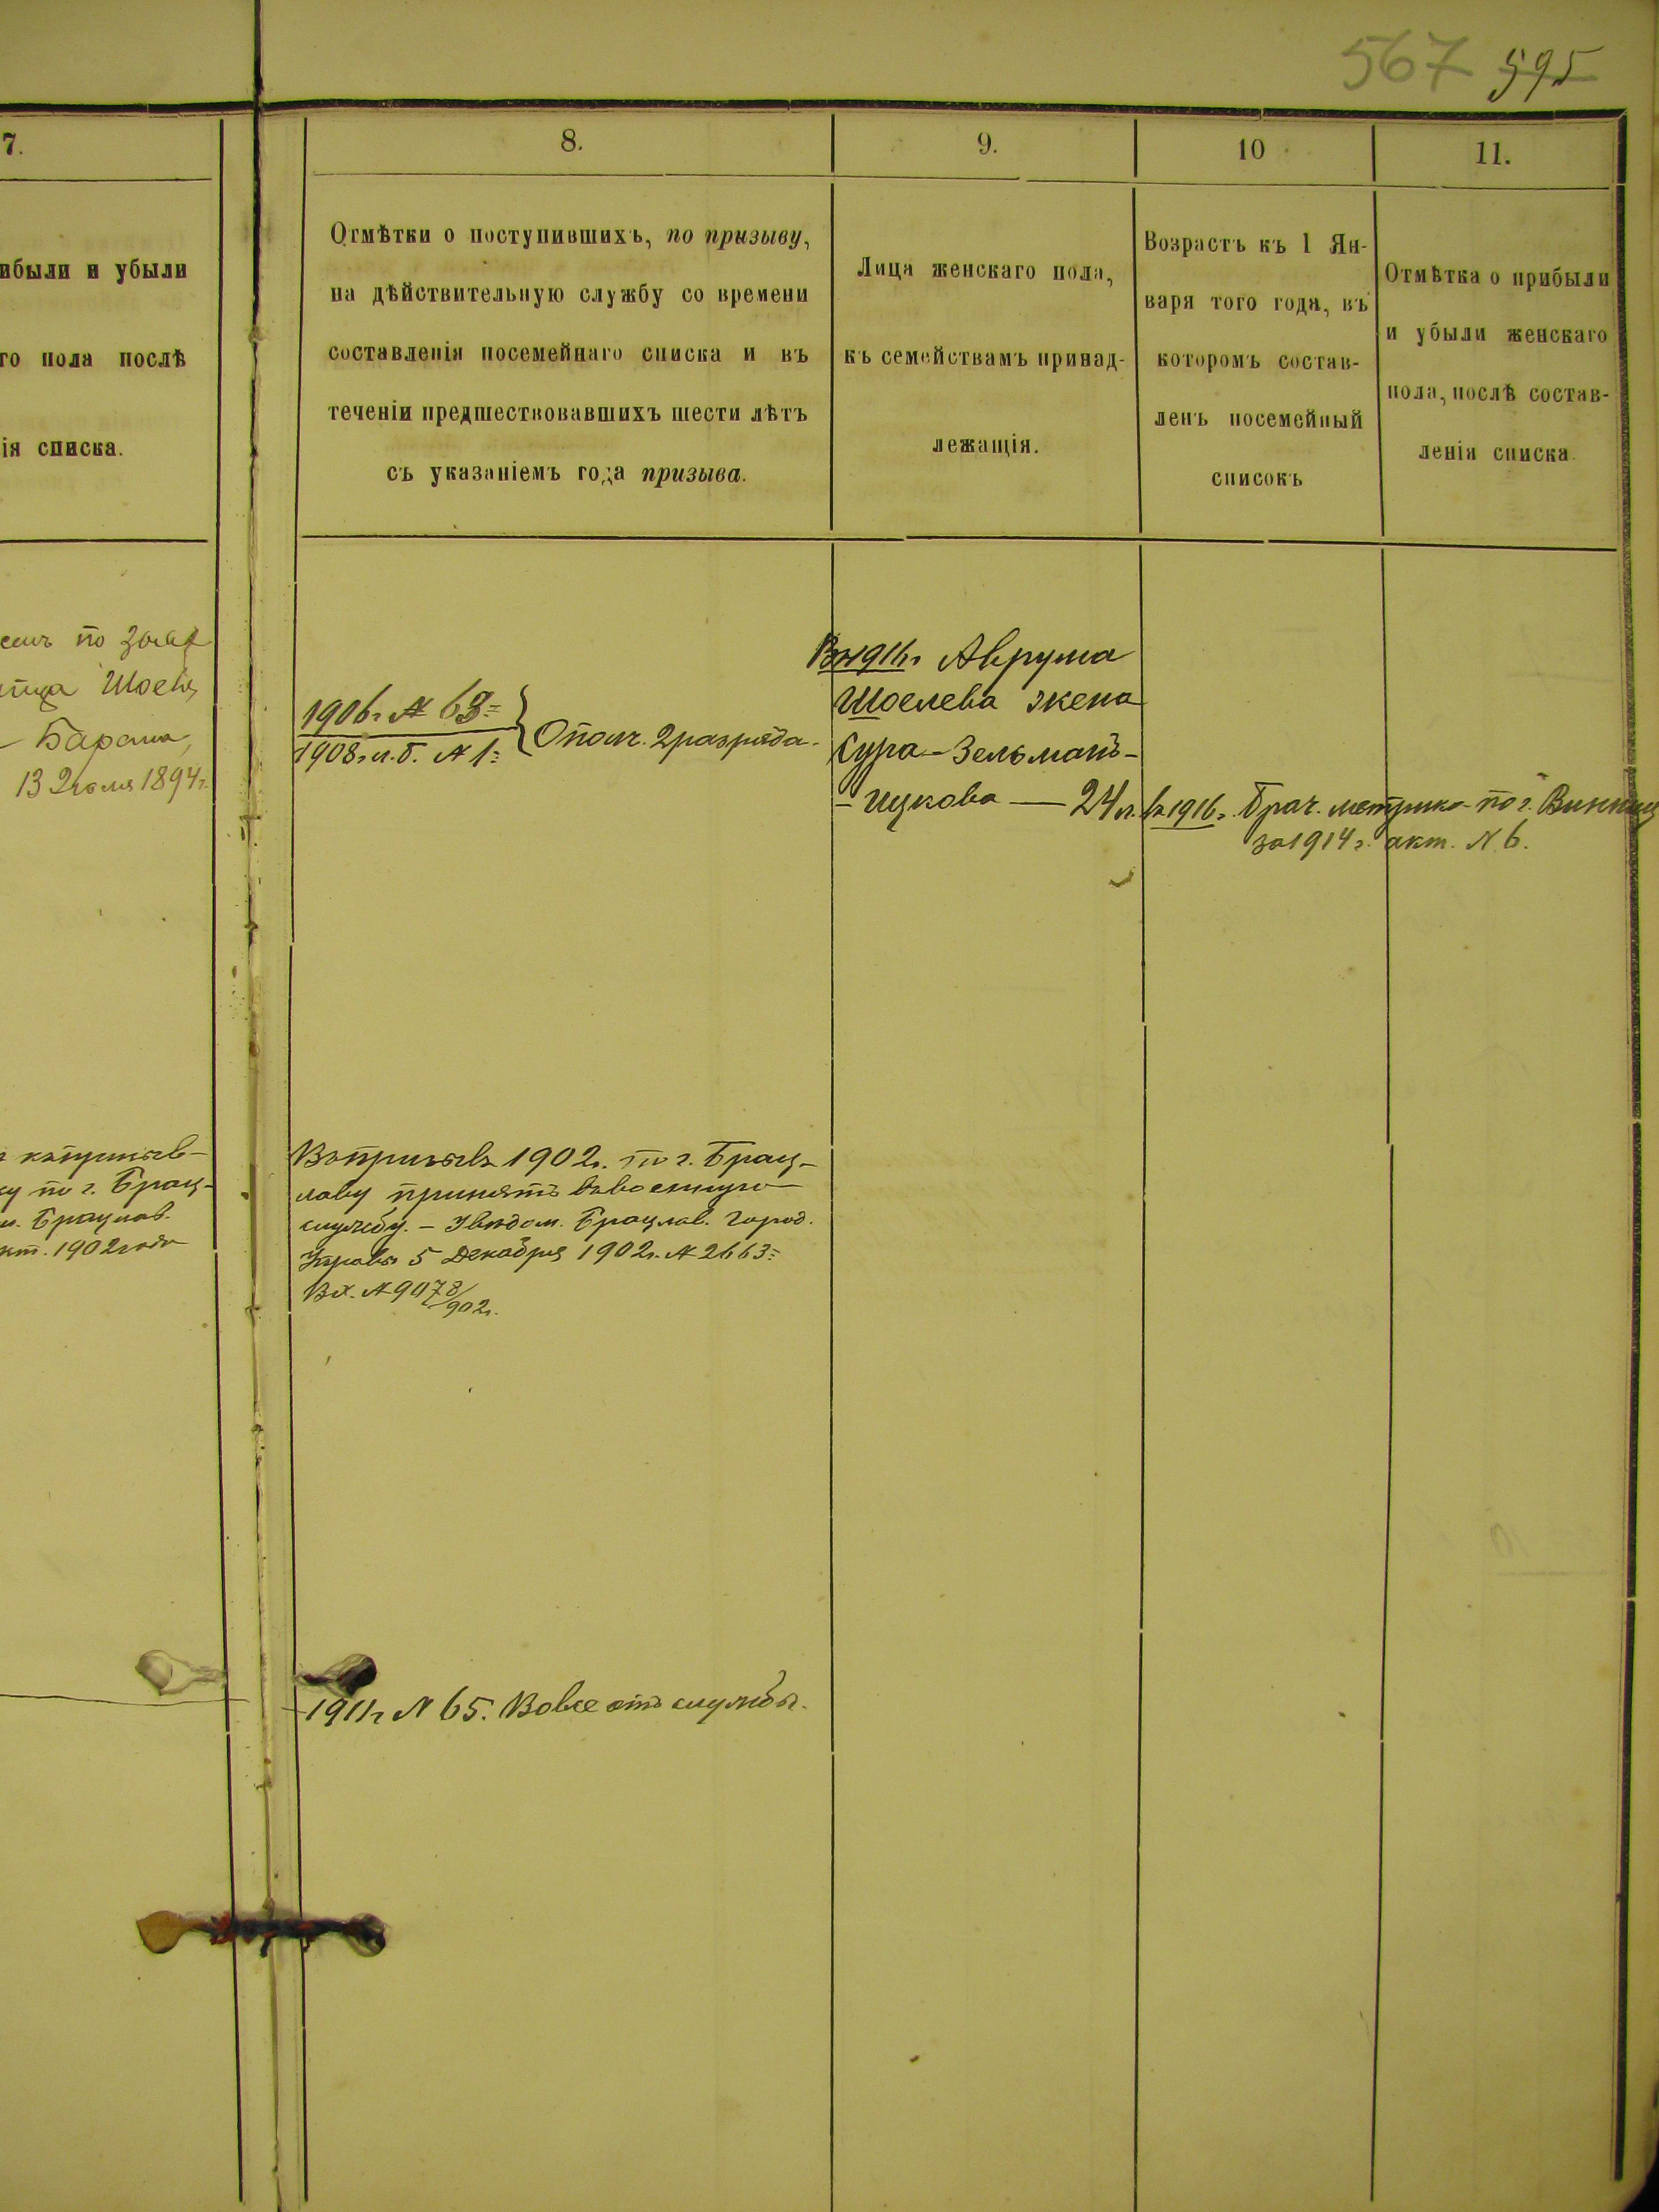 567 595
7.
8.
9.
10
11.
ибыли и убыли
го пола послѣ
ія списка.
Отмѣтки о поступившихъ, по призыву,
на дѣйствительную службу со времени
составленія посемейнаго списка и въ
теченіи предшествовавшихъ шести лѣтъ
съ указаніемъ года призыва.
Лица женскаго пола,
къ семействамъ принад-
лежащія.
Возрастъ къ 1 Ян-
варя того года, въ
которомъ состав-
ленъ посемейный
списокъ
Отмѣтка о прибыли
и убыли женскаго
пола, послѣ состав-
ленія списка.
по
Шоеля
Барама,
13 Июля 1894 г.
1906 г. № 68
1908 г. л. б. № 1
Ополч. 2 разряда.
Въ 1916 г. Аврума
Шоелева жена
Сура-Зельманъ-
-Ицкова — 24 л. въ 1916 г. Брач. метрика по г. Винниц
за 1914 г. акт. № 6.
по г. Брац-
Брацлав.
1902 года
Въ призывъ 1902 г. по г. Брац-
лаву принятъ въ военную
службу. - Увѣдом. Брацлав. Город.
Управы 5 Декабря 1902 г. № 2663
Вх. № 9078/902 г.
1911 г. № 65. Вовсе отъ службы.